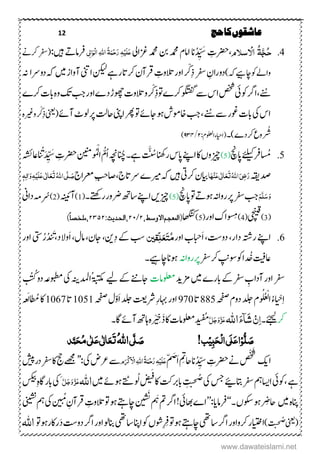 عاشقوں کا حج 12
4. حُجَّۃُ الْاِسلام، حضرتِ سیِّدُنا امام محمد بن محمد غزالی عَلَیْہِ رَحْمَۃُ اللہِ الْوَالِی فرماتے ہیں: (سفر کرنے
والے کو چاہیے کہ) دورانِ سفر ذکر اور تلاوتِ قرآن کرتا رہے لیکن اتنی آواز میں کہ دوسرا نہ
سنے، اگر کوئی شخص اس سے گفتگو کرے تو ذکر و تلاوت چھوڑ دے اور جب تک وہ بات کرے
اس کی بات غور سے سنے، جب خاموش ہو جائے تو پھر اپنی حالت پر لوٹ آئے (یعنی ذکر وغیرہ
شروع کردے)۔
5. مسافر کیلئے پانچ (5) چیزوں کا اپنے پاس رکھنا سنَّت ہے۔ چنانچہ اُمُّ المؤمنین حضرتِ سیِّدَتُنا عائشہ
صدیقہ رَضِیَ اللہُ تَعَالٰی عَنْہَا بیان کرتی ہیں کہ میرے سرتاج، صاحبِ معراج صَلَّی اللہُ تَعَالٰی عَلَیْہِ وَاٰلِہٖ
وَسَلَّمَ جب سفر پر روانہ ہوتے تو پانچ (5) چیزیں اپنے ساتھ ضرور رکھتے۔ (1) آئینہ (2) سُرمہ دانی
(3) قینچی (4) مسواک اور (5) کنگھا۔ (المعجم الاوسط، ۲/۲۰، الحدیث: ۲۳۵۲، ملخصاً)
6. اپنے تمام رشتہ دار، دوست، احباب اور مُتَعَلِّقِیْن کے سب دین، جان، مال، اولاد، تندرستی اور
عافیت خدا کو سونپ کر سفر پر روانہ ہونا چاہیے۔
سفر اور آدابِ سفر کے بارے میں مزید معلومات جاننے کے لیے مکتبۃ المدینہ کی مطبوعہ دو کُتُب
اِحْیَاءُ الْعُلُوم جلد دوم صفحہ 885 تا 970 اور بہارِ شریعت جلد اوّل صفحہ 1051 تا 1067 کا مُطالَعہ
کرلیجئے اِنْ شَآءَ اللہ عَزَّوَجَلَّ مفید معلومات کا ذخیرہ ہاتھ آئے گا۔
صَلُّوْا عَلَی الْحَبِیْب! صَلَّی اللہُ تَعَالٰی عَلٰی مُحَمَّد
ایک شخص نے حضرتِ سیِّدُنا حاتم اصم عَلَیْہِ رَحْمَۃُ اللہِ الْاَکْرَم سے عرض کی: ”مجھے حج کا سفر درپیش
ہے، کوئی ایسا ہم سفر بتایئے جس کی صحبتِ بابرکت کا فیض لوٹتے ہوئے میں اللہ عَزَّوَجَلَّ کی بارگاہِ بیکس
پناہ میں حاضر ہو سکوں۔“ فرمایا: ”اے بھائی! اگر تم ہم نشین چاہتے ہو تو تلاوتِ قرآنِ مبین کی ہم نشینی
(یعنی صحبت) اختیار کرو اور اگر ساتھی چاہتے ہو تو فرشتوں کو اپنا ساتھی بنا لو اور اگر دوست درکار ہو تو اللہ
www.dawateislami.net